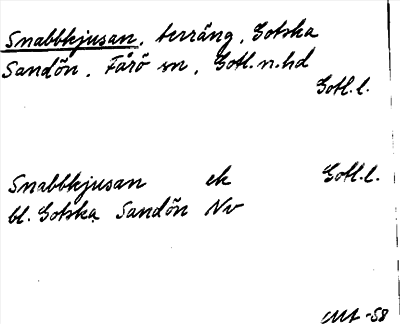 Snabbkjusan, terräng, Gotska
Sandön, Fårö sn, Gotl. n. hd
Gotl. l.
Snabbkjusan ek Gotl. l.
bl. Gotska Sandön Nv
-58